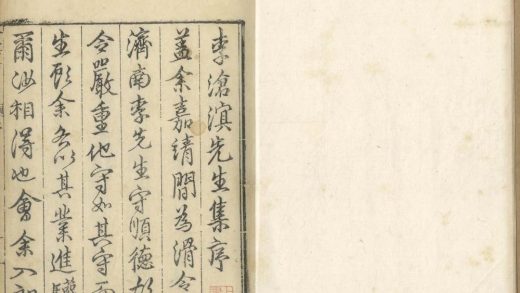 李滄溟先生集序
蓋余嘉靖間為滑令
濟南李先生守順德
令嚴重他守如其守而
生顧余各以其業進
爾汝相得也會余入